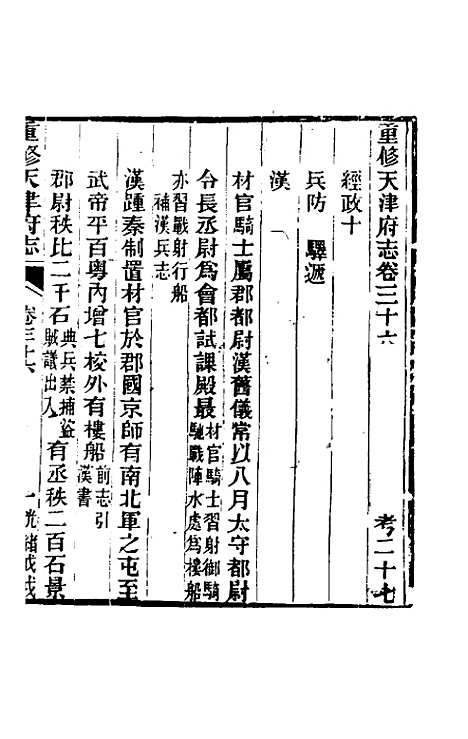 重修天津府志卷三十六　考二十七
經政十
兵防　驛遞
漢
材官騎士屬郡都尉漢舊儀常以八月太守都尉
令長丞尉爲會都試課殿最材官騎士習射御騎馳戰陣水處爲樓船
亦習戰射行船補漢兵志
漢踵秦制置材官於郡國京師有南北軍之屯至
武帝平百粵內增七校外有樓船前志引漢書
郡尉秩比二千石典兵禁捕盜賊議出入有丞秩二百石景
重修天津府志　卷三十六　一　光緒戊戌